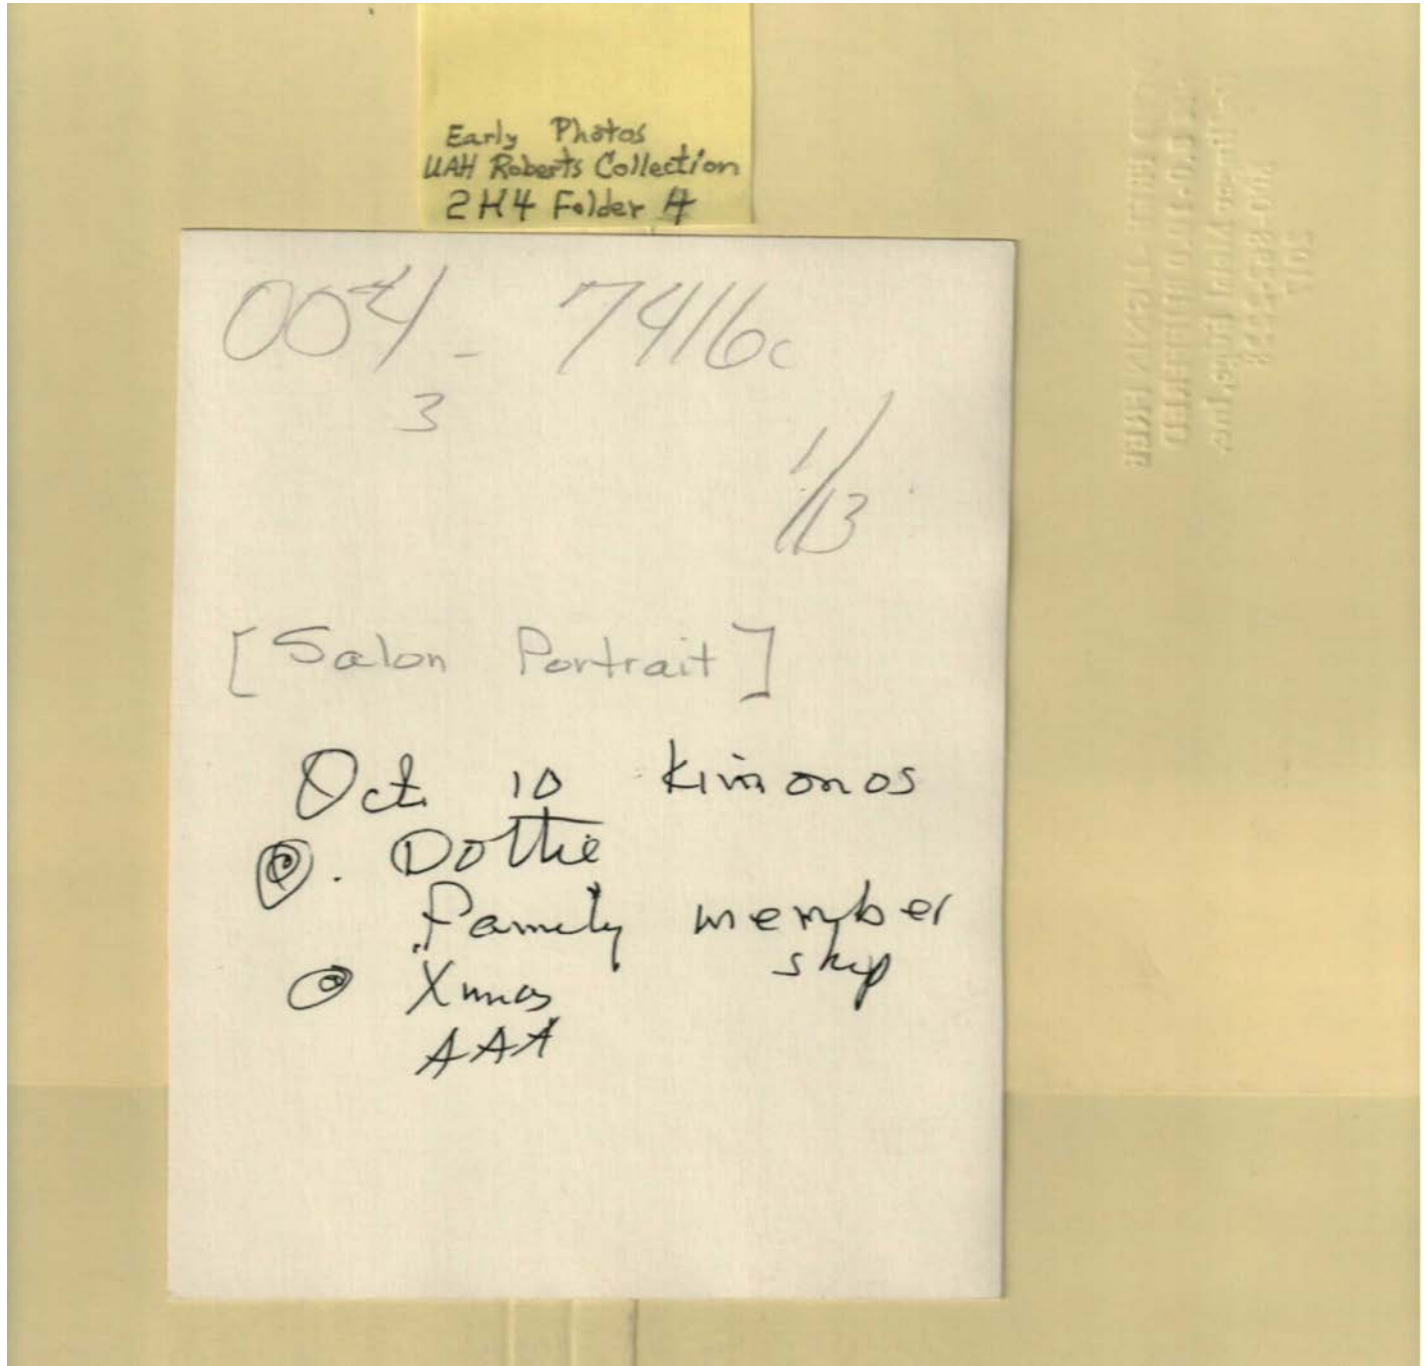 Early Photos
UAH Roberts Collection
2H4 Folder A
004 - 7416c
3
1/13
[Salon Portrait]
Oct. 10 kimonos
Dottie
Family member
ship
Xmas
AAA
2017